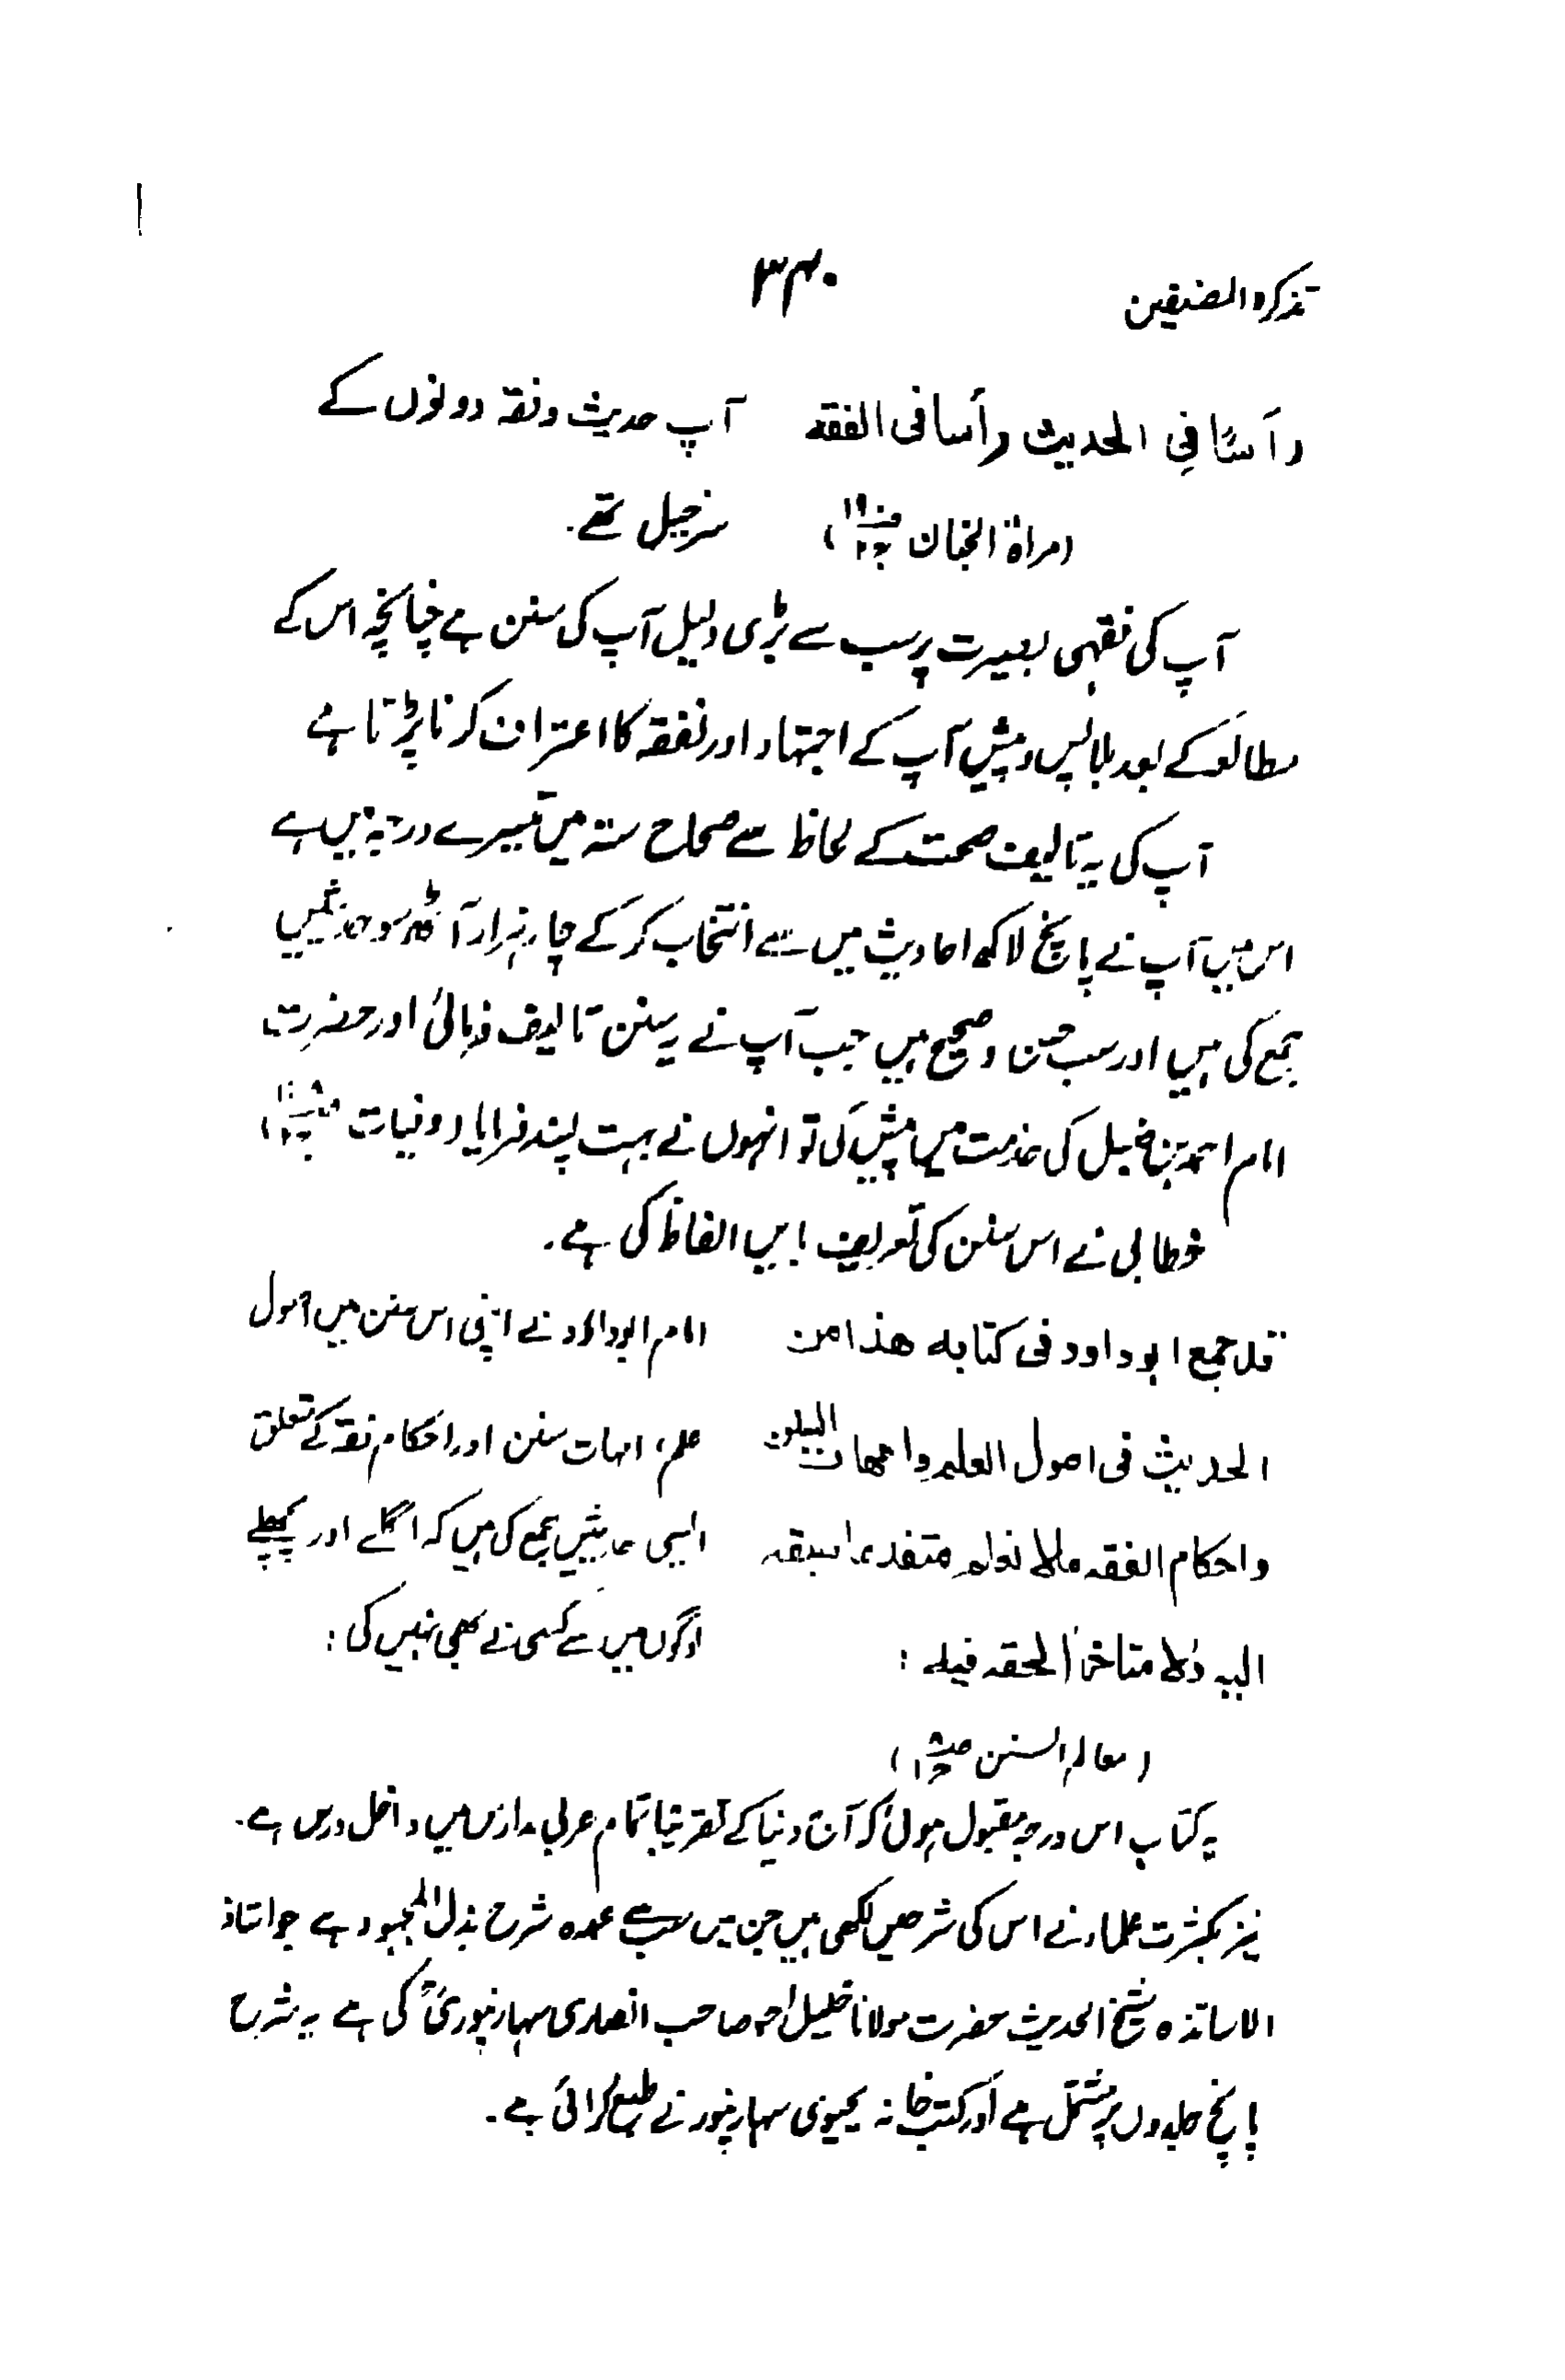 تذکرۃ المصنفین
۳۴۰
رأسًا فی الحدیث رأسا فی الفقہ آپ حدیث وفقہ دونوں کے
(مراۃ الجنان) سرخیل تھے۔
آپ کی فقہی بصیرت پر سب سے بڑی دلیل آپ کی سنن ہے چنانچہ اس کے
مطالعہ کے بعد بلا پس وپیش آپ کے اجتہاد اور تفقہ کا اعتراف کرنا پڑتا ہے
آپ کی یہ تالیف صحت کے لحاظ سے صحاح ستہ میں تیسرے درجہ میں ہے
اس میں آپ نے پانچ لاکھ احادیث میں سے انتخاب کر کے چار ہزار آٹھ سو حدیثیں
جمع کی ہیں اور سب حسن وصحیح ہیں جب آپ نے یہ سنن تالیف فرمائی اور حضرت
امام احمد بن حنبل کی خدمت میں پیش کی تو انہوں نے بہت پسند فرمایا (وفیات)
خطابی نے اس سنن کی تعریف بایں الفاظ کی ہے۔
قد جمع ابو داود فی کتابہ ھذا من امام ابو داؤد نے اپنی اس سنن میں اصول
الحدیث فی اصول العلم وامھات السنن علم، امہات سنن اور احکام فقہ کے متعلق
واحکام الفقہ مالا نعلم متقدما سبقہ ایسی حدیثیں جمع کی ہیں کہ اگلے اور پچھلے
الیہ ولا متاخرا لحقہ فیہ : لوگوں میں سے کسی نے بھی نہیں کی :
(معالم السنن)
یہ کتاب اس درجہ مقبول ہوئی کہ آج دنیا کے تقریبًا تمام عربی مدارس میں داخل درس ہے۔
نیز بکثرت علماء نے اس کی شرحیں لکھی ہیں جن میں سب سے عمدہ شرح بذل المجہود ہے جو استاذ
الاساتذہ شیخ الحدیث حضرت مولانا خلیل احمد صاحب انصاری سہارنپوریؒ کی ہے یہ شرح
پانچ جلدوں پر مشتمل ہے اور کتب خانہ یحیوی سہارنپور نے طبع کرائی ہے۔